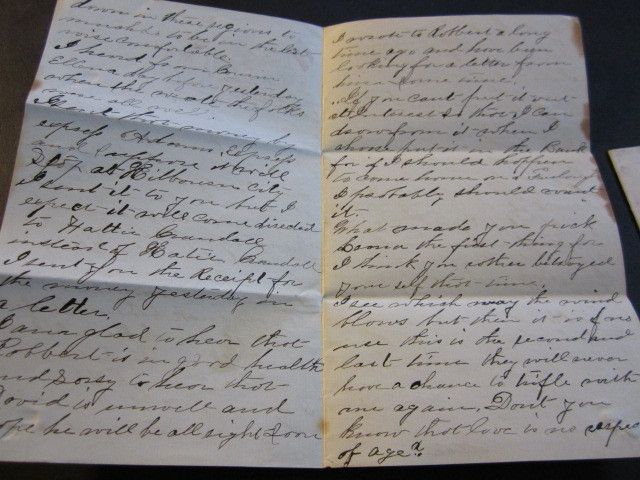 down in these regions to
mosquitos to be in the least
wise comfortable.
I heard from
Ellen a day before yesterday
when she wrote the folks
were all well.
I sent that money by
express Adams Express
and I suppose it will
stop at Hilbourn city
I sent it to you but I
expect it will come directed
to Hattie Crandall
instead of Hatie Crandall
I sent you the Receipt for
the money yesterday in
a letter.
I am glad to hear that
Robbert is in good health
and Sorry to hear that
David is unwell and
hope he will be all right Soon
I wrote to Robbert a long
time ago and have been
looking for a letter from
him some time.
If you cant put it out
at interest so that I can
draw from it when I
please put it in the Bank
for if I should happen
to come home on Furlough
I probably should want
it.
What made you pick
Lama the first thing for
I think you rather betrayed
your self that time.
I see which way the wind
blows but then it is of no
use this is the second and
last time they will never
have a chance to trifle with
me again, Dont you
know that love is no respec
of age?